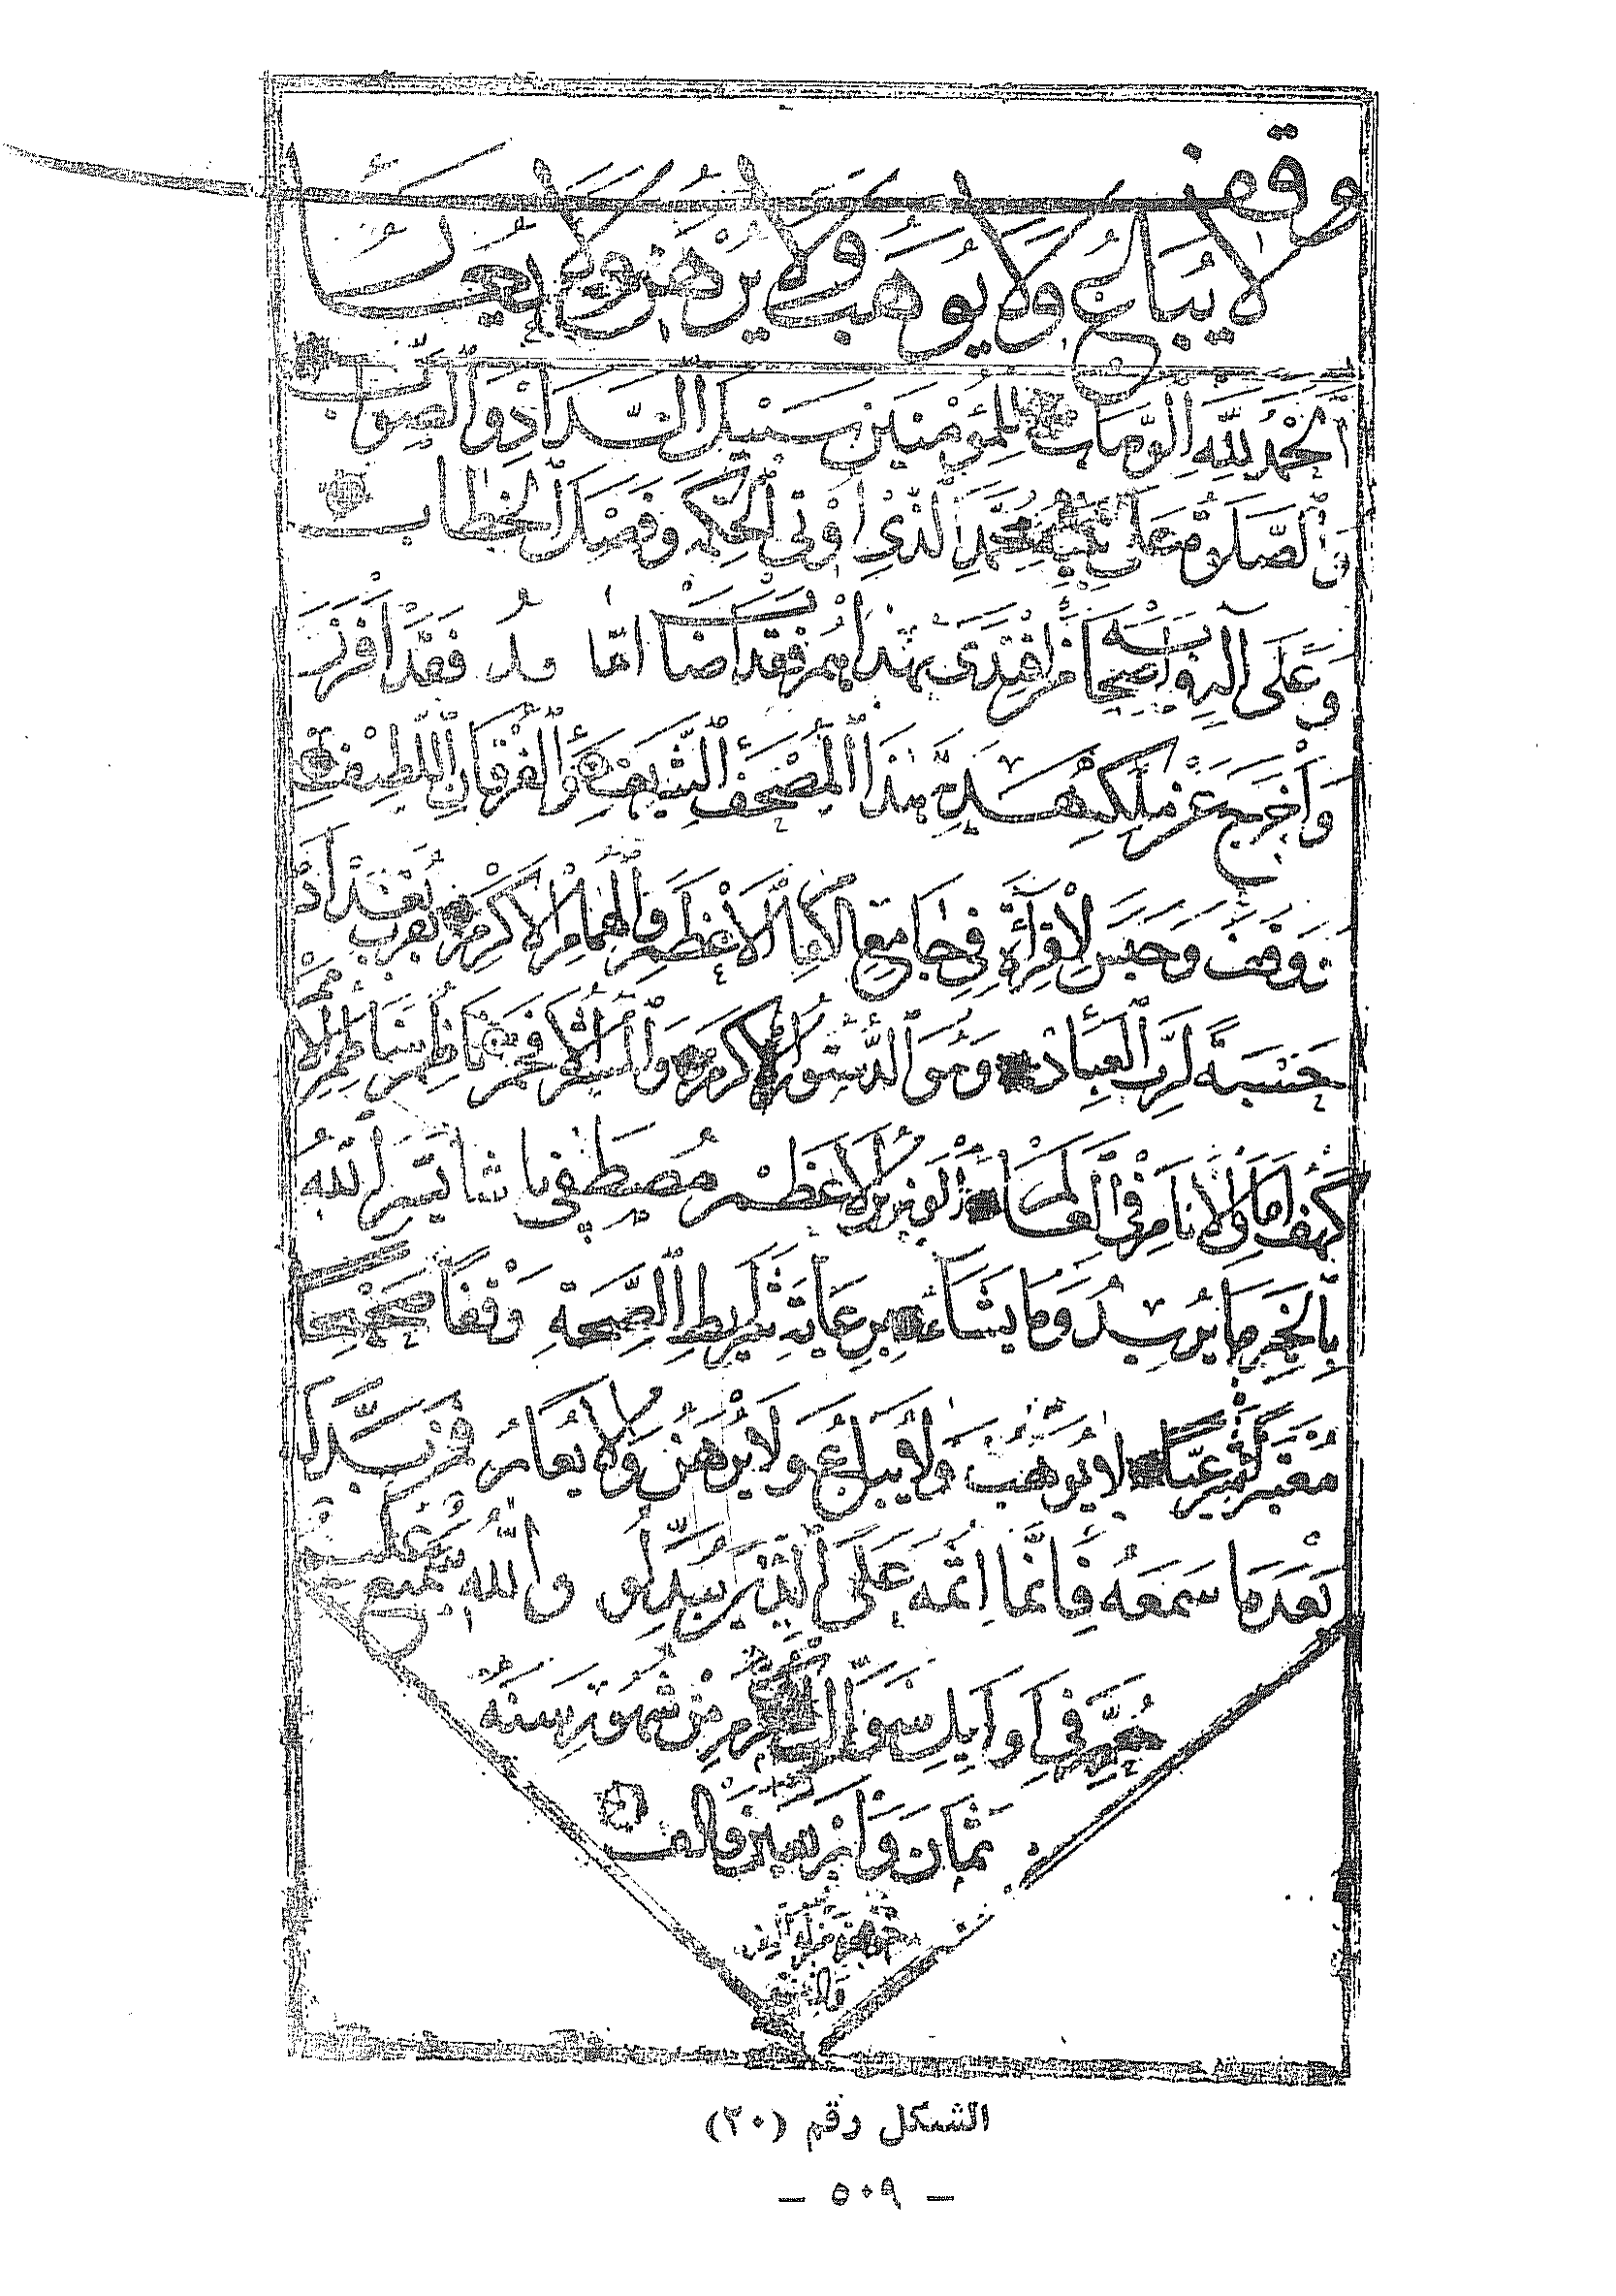 وقف
لا يباع ولا يوهب ولا يرهن ولا يعار
الحمد لله الوهاب للمؤمنين سبيل السداد والصواب
والصلوة على نبيه محمد الذي اوتي الحكمة وفصل الخطاب
وعلى آله واصحابه من اقتدى بهداهم فقد اصاب اما بعد فقد افرز
واخرج عن ملكه هدية هذا المصحف الشريف والفرقان اللطيف
ووقف وحبس لقرآءة في جامع الامام الاعظم والهمام الاكرم بقرب بغداد
حسبة لرب العباد وهو الدستور الاكرم والمشير الافخم ناظم مناظم الامم
كهف اماني الانام في العالم الوزير الاعظم مصطفى پاشا يسر له الله
بالخير ما يريد وما يشاء برعاية شرايط الصحة وقفا صحيحا
معتبرا شرعيا لا يوهب ولا يباع ولا يرهن ولا يعار فمن بدله
بعد ما سمعه فانما اثمه على الذين يبدلونه والله سميع عليم
حرر في اوايل شوال المكرم من شهور سنة
ثمان واربعين والف
الشكل رقم (٢٠)
– ٥٠٩ –